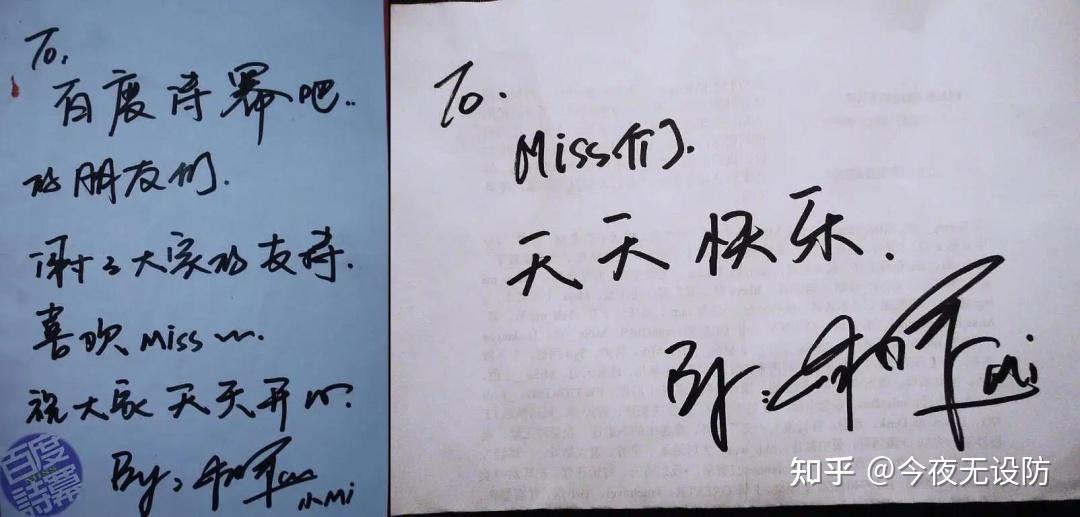 To.
百度诗幂吧..
的朋友们.
谢谢大家的支持.
喜欢 Miss ~~.
祝大家天天开心.
By:
小Mi
百度
詩幂
To.
Miss们.
天天快乐.
By:
Mi
知乎 @今夜无设防